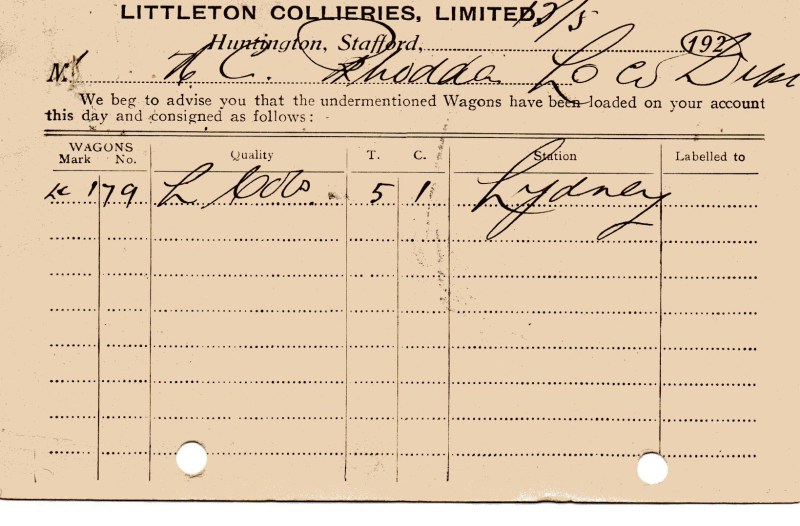 LITTLETON COLLIERIES, LIMITED.
Huntington, Stafford, 192
M. C. Rhodda Loco Dept
We beg to advise you that the undermentioned Wagons have been loaded on your account
this day and consigned as follows:-
WAGONS Quality T. C. Station Labelled to
Mark No.
179 L 5 1 Lydney